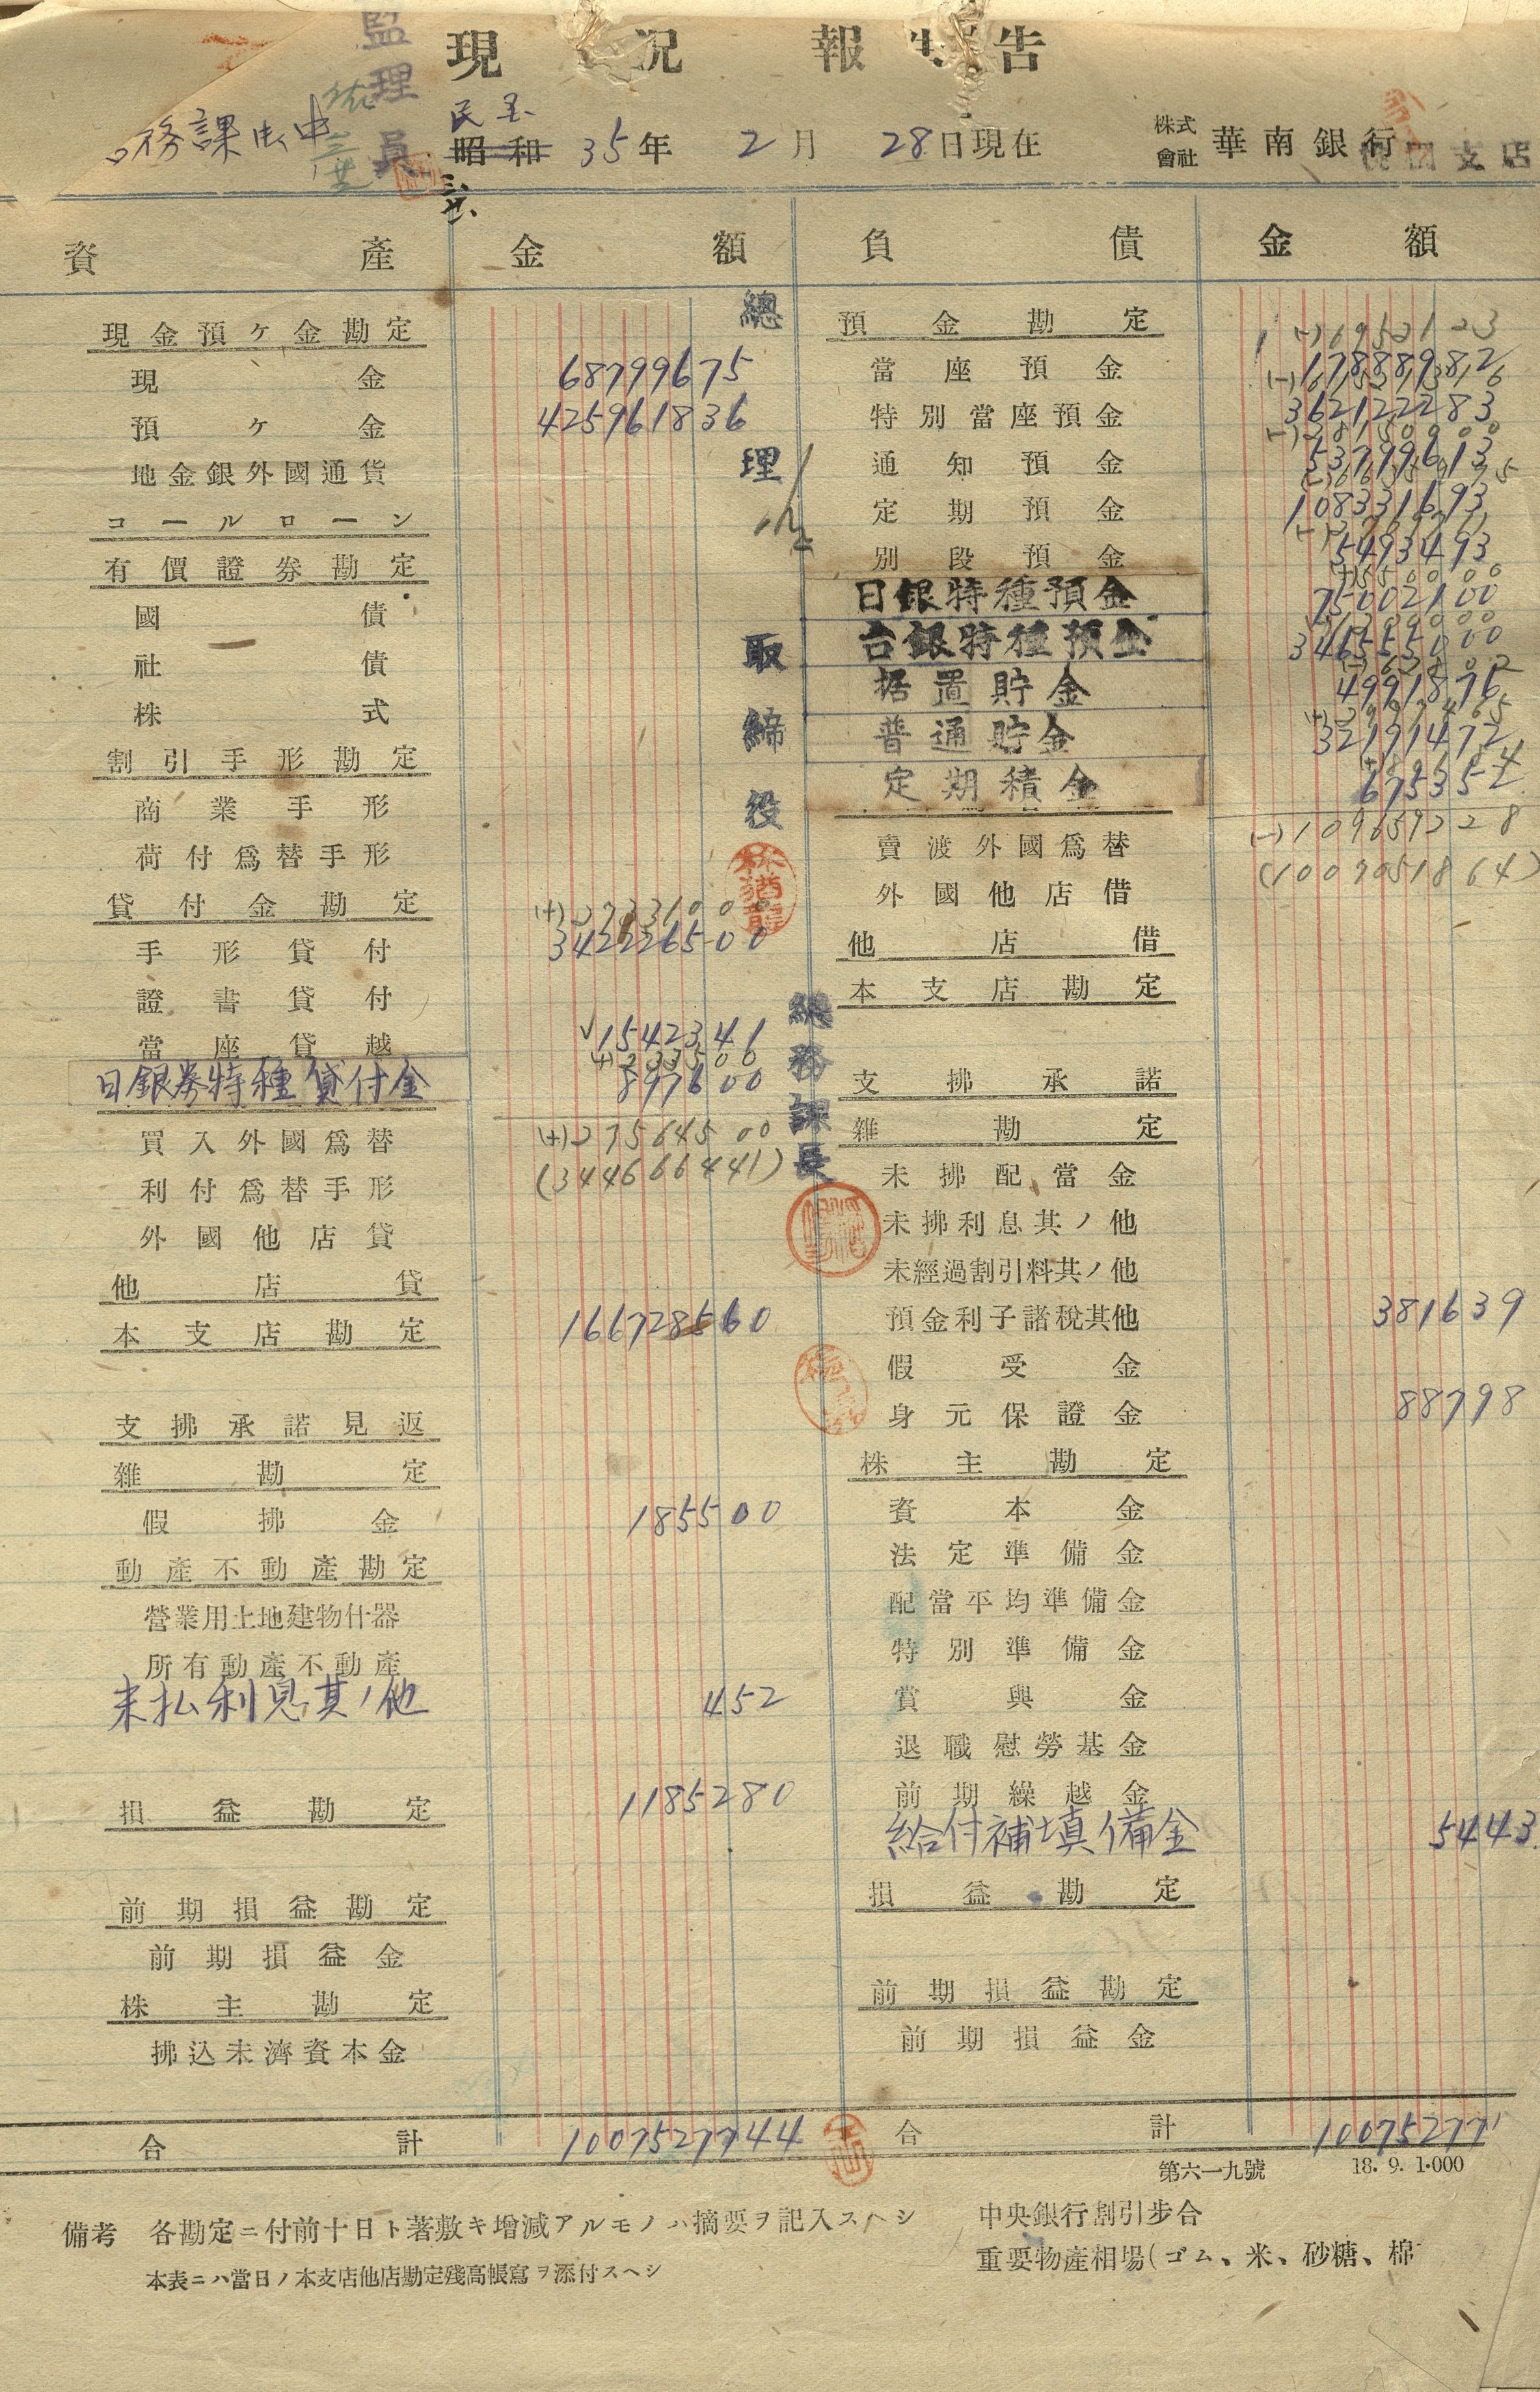 現況報告
監理員
務課
民国
昭和 35年 2月 28日現在
株式會社 華南銀行 支店
資產 金額 負債 金額
現金預ケ金勘定
現金 68799675
預ケ金 425961836
地金銀外國通貨
コールローン
有價證券勘定
國債
社債
株式
割引手形勘定
商業手形
荷付爲替手形
貸付金勘定
手形貸付 342226500
證書貸付
當座貸越 1542341
日銀券特種貸付金 897600
(+)27564500
(344666441)
買入外國爲替
利付爲替手形
外國他店貸
他店貸
本支店勘定 166728560
支拂承諾見返
雜勘定
假拂金 185500
動產不動產勘定
營業用土地建物什器
所有動產不動產
未払利息其ノ他 452
損益勘定 1185280
前期損益勘定
前期損益金
株主勘定
拂込未濟資本金
合計 1007527744
總理
取締役
林猶龍
總務課長
預金勘定
當座預金 178889812
特別當座預金 362122283
通知預金 53799613
定期預金 108331693
別段預金 5493493
日銀特種預金 75002100
台銀特種預金
据置貯金 4991876
普通貯金 32191472
定期積金
(-)109659228
(1007051864)
賣渡外國爲替
外國他店借
他店借
本支店勘定
支拂承諾
雜勘定
未拂配當金
未拂利息其ノ他
未經過割引料其ノ他
預金利子諸稅其他 381639
假受金
身元保證金 88798
株主勘定
資本金
法定準備金
配當平均準備金
特別準備金
賞與金
退職慰勞基金
前期繰越金
給付補填備金 5443
損益勘定
前期損益勘定
前期損益金
合計 100752771
第六一九號 18. 9. 1·000
備考 各勘定ニ付前十日ト著敷キ增減アルモノハ摘要ヲ記入スヘシ
本表ニハ當日ノ本支店他店勘定殘高帳寫ヲ添付スヘシ
中央銀行割引步合
重要物產相場(ゴム、米、砂糖、棉